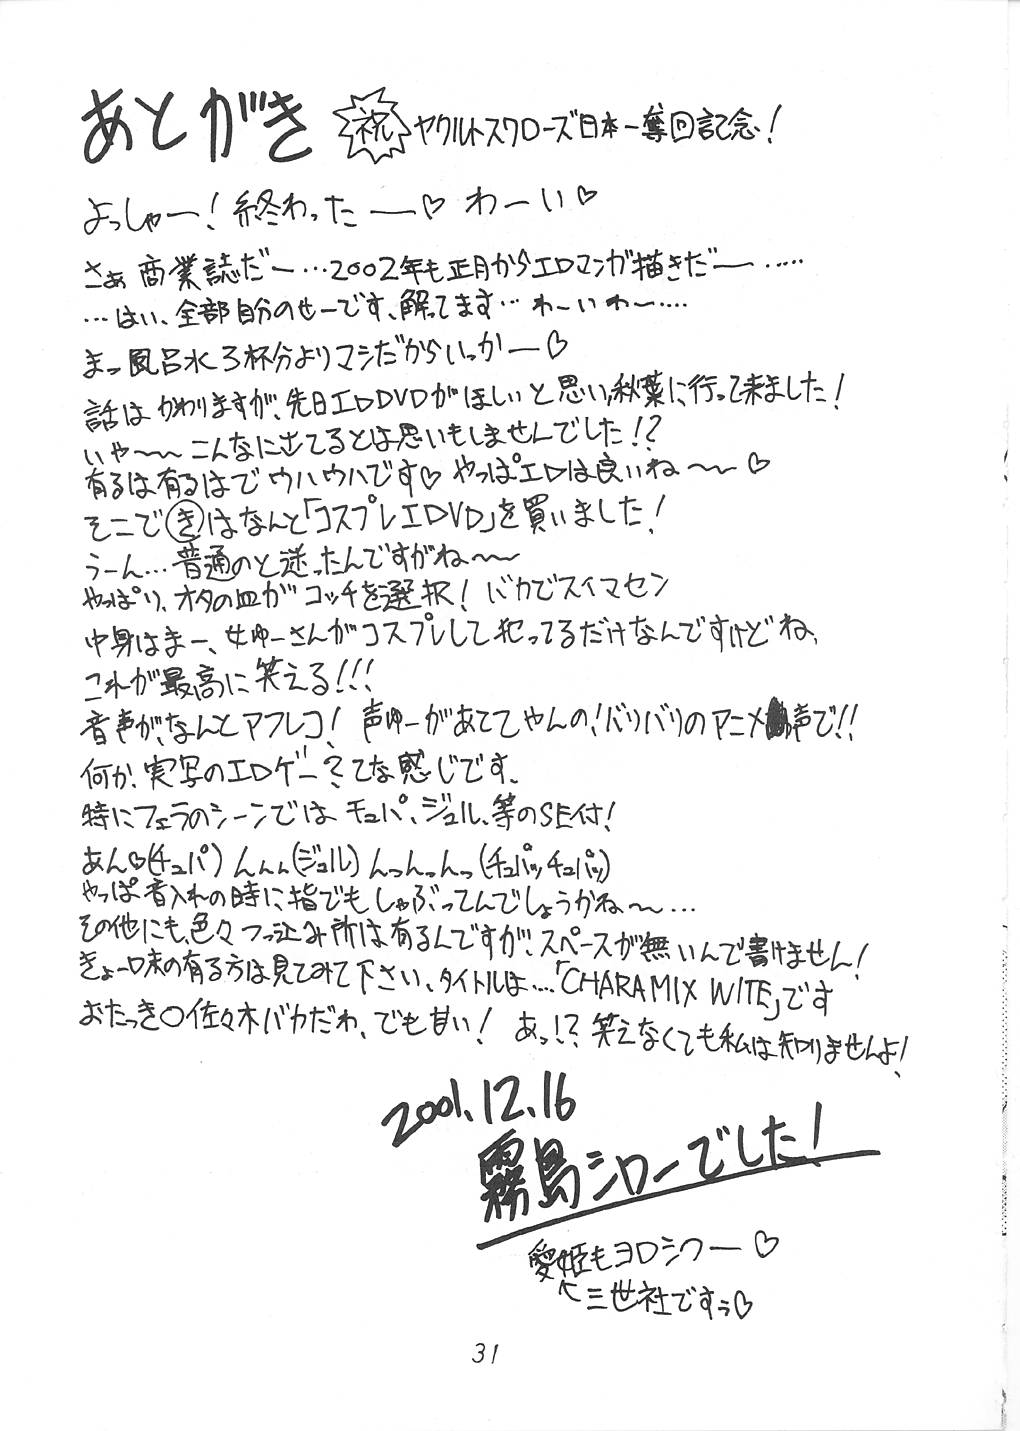 あとがき 祝 ヤクルトスワローズ日本一奪回記念!
よっしゃー!終わったー♡わーい♡
さぁ商業誌だー…2002年も正月からエロマンガ描きだー……
…はい、全部自分のせーです、解ってます…わーいわー……
まっ風呂水3杯分よりマシだからいっかー♡
話はかわりますが、先日エロDVDがほしいと思い、秋葉に行って来ました!
いや〜〜こんなにきてるとは思いもしませんでした!?
有るは有るはでウハウハです♡やっぱエロは良いね〜〜♡
そこで㋖はなんと「コスプレエロDVD」を買いました!
うーん…普通のと迷ったんですがね〜〜
やっぱり、オタの血がコッチを選択!バカでスイマセン
中身はまー、女ゆーさんがコスプレして犯ってるだけなんですけどね、
これが最高に笑える!!!
音声が、なんとアフレコ!声ゆーがあててやんの!バリバリのアニメ声で!!
何か、実写のエロゲー?てな感じです、
特にフェラのシーンではチュパ、ジュル、等のSE付!
あん♡(チュパ)んんん(ジュル)んっんっんっ(チュパッチュパッ)
やっぱ音入れの時に指でもしゃぶってんでしょうかね〜…
その他にも、色々つっ込み所は有るんですが、スペースが無いんで書けません!
きょー味の有る方は見てみて下さい、タイトルは…「CHARAMIX WITE」です
おたっき○佐々木バカだわ、でも甘い! あっ!?笑えなくても私は知りませんよ!
2001.12.16
霧島シローでした!
愛姫もヨロシクー♡
↖三世社ですぅ♡
31